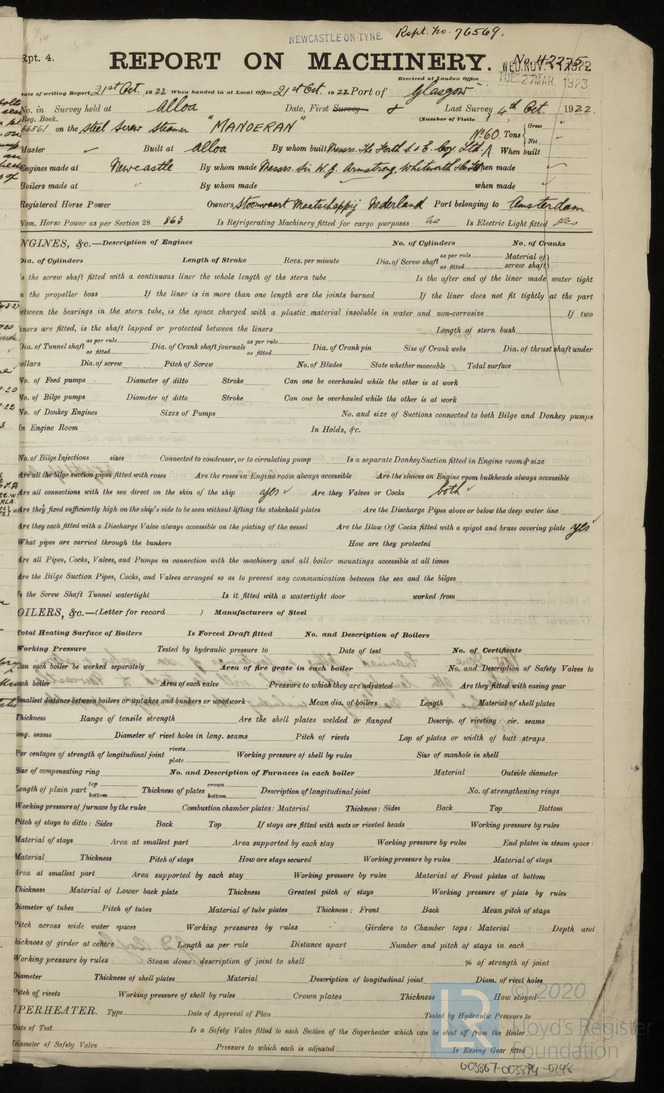 NEWCASTLE-ON-TYNE. Rept. no. 76569.
Rpt. 4. REPORT ON MACHINERY. No. 42275
WED. NOV. 1922
Received at London Office TUE. 27 MAR. 1923
Date of writing Report 21st Oct. 1922 When handed in at Local Office 21st Oct. 1922 Port of Glasgow
No. in Survey held at Alloa Date, First Survey & Last Survey 4th Oct. 1922.
Reg. Book. (Number of Visits
66561 on the Steel Screw Steamer "MANDERAN" No 60 Tons { Gross Net
Master Built at Alloa By whom built Messrs. The Forth S. & E. Coy Ltd. When built
Engines made at Newcastle By whom made Messrs. Sir W. G. Armstrong, Whitworth when made
Boilers made at By whom made when made
Registered Horse Power Owners Stoomvaart Maatschappij Nederland Port belonging to Amsterdam
Nom. Horse Power as per Section 28 863 Is Refrigerating Machinery fitted for cargo purposes Is Electric Light fitted Yes
NGINES, &c.—Description of Engines No. of Cylinders No. of Cranks
Dia. of Cylinders Length of Stroke Revs. per minute Dia. of Screw shaft as per rule as fitted Material of screw shaft
Is the screw shaft fitted with a continuous liner the whole length of the stern tube Is the after end of the liner made water tight
in the propeller boss If the liner is in more than one length are the joints burned If the liner does not fit tightly at the part
between the bearings in the stern tube, is the space charged with a plastic material insoluble in water and non-corrosive If two
liners are fitted, is the shaft lapped or protected between the liners Length of stern bush
Dia. of Tunnel shaft as per rule as fitted Dia. of Crank shaft journals as per rule as fitted Dia. of Crank pin Size of Crank webs Dia. of thrust shaft under
collars Dia. of screw Pitch of Screw No. of Blades State whether moveable Total surface
No. of Feed pumps Diameter of ditto Stroke Can one be overhauled while the other is at work
No. of Bilge pumps Diameter of ditto Stroke Can one be overhauled while the other is at work
No. of Donkey Engines Sizes of Pumps No. and size of Suctions connected to both Bilge and Donkey pumps
In Engine Room In Holds, &c.
No. of Bilge Injections sizes Connected to condenser, or to circulating pump Is a separate Donkey Suction fitted in Engine room & size
Are all the bilge suction pipes fitted with roses Are the roses in Engine room always accessible Are the sluices on Engine room bulkheads always accessible
Are all connections with the sea direct on the skin of the ship yes Are they Valves or Cocks both
Are they fixed sufficiently high on the ship's side to be seen without lifting the stokehold plates Are the Discharge Pipes above or below the deep water line
Are they each fitted with a Discharge Valve always accessible on the plating of the vessel Are the Blow Off Cocks fitted with a spigot and brass covering plate yes
What pipes are carried through the bunkers How are they protected
Are all Pipes, Cocks, Valves, and Pumps in connection with the machinery and all boiler mountings accessible at all times
Are the Bilge Suction Pipes, Cocks, and Valves arranged so as to prevent any communication between the sea and the bilges
Is the Screw Shaft Tunnel watertight Is it fitted with a watertight door worked from
OILERS, &c.—(Letter for record ) Manufacturers of Steel
Total Heating Surface of Boilers Is Forced Draft fitted No. and Description of Boilers
Working Pressure Tested by hydraulic pressure to Date of test No. of Certificate
Can each boiler be worked separately Area of fire grate in each boiler No. and Description of Safety Valves to
each boiler Area of each valve Pressure to which they are adjusted Are they fitted with easing gear
Smallest distance between boilers or uptakes and bunkers or woodwork Mean dia. of boilers Length Material of shell plates
Thickness Range of tensile strength Are the shell plates welded or flanged Descrip. of riveting: cir. seams
long. seams Diameter of rivet holes in long. seams Pitch of rivets Lap of plates or width of butt straps
Per centages of strength of longitudinal joint rivets plate Working pressure of shell by rules Size of manhole in shell
Size of compensating ring No. and Description of Furnaces in each boiler Material Outside diameter
Length of plain part top bottom Thickness of plates crown bottom Description of longitudinal joint No. of strengthening rings
Working pressure of furnace by the rules Combustion chamber plates: Material Thickness: Sides Back Top Bottom
Pitch of stays to ditto: Sides Back Top If stays are fitted with nuts or riveted heads Working pressure by rules
Material of stays Area at smallest part Area supported by each stay Working pressure by rules End plates in steam space:
Material Thickness Pitch of stays How are stays secured Working pressure by rules Material of stays
Area at smallest part Area supported by each stay Working pressure by rules Material of Front plates at bottom
Thickness Material of Lower back plate Thickness Greatest pitch of stays Working pressure of plate by rules
Diameter of tubes Pitch of tubes Material of tube plates Thickness: Front Back Mean pitch of stays
Pitch across wide water spaces Working pressures by rules Girders to Chamber tops: Material Depth and
thickness of girder at centre Length as per rule Distance apart Number and pitch of stays in each
Working pressure by rules Steam dome: description of joint to shell % of strength of joint
Diameter Thickness of shell plates Material Description of longitudinal joint Diam. of rivet holes
Pitch of rivets Working pressure of shell by rules Crown plates Thickness How stayed
UPERHEATER. Type Date of Approval of Plan Tested by Hydraulic Pressure to
Date of Test Is a Safety Valve fitted to each Section of the Superheater which can be shut off from the Boiler
Diameter of Safety Valve Pressure to which each is adjusted Is Easing Gear fitted
© 2020
LR Lloyd's Register
Foundation
003867-003874-0298